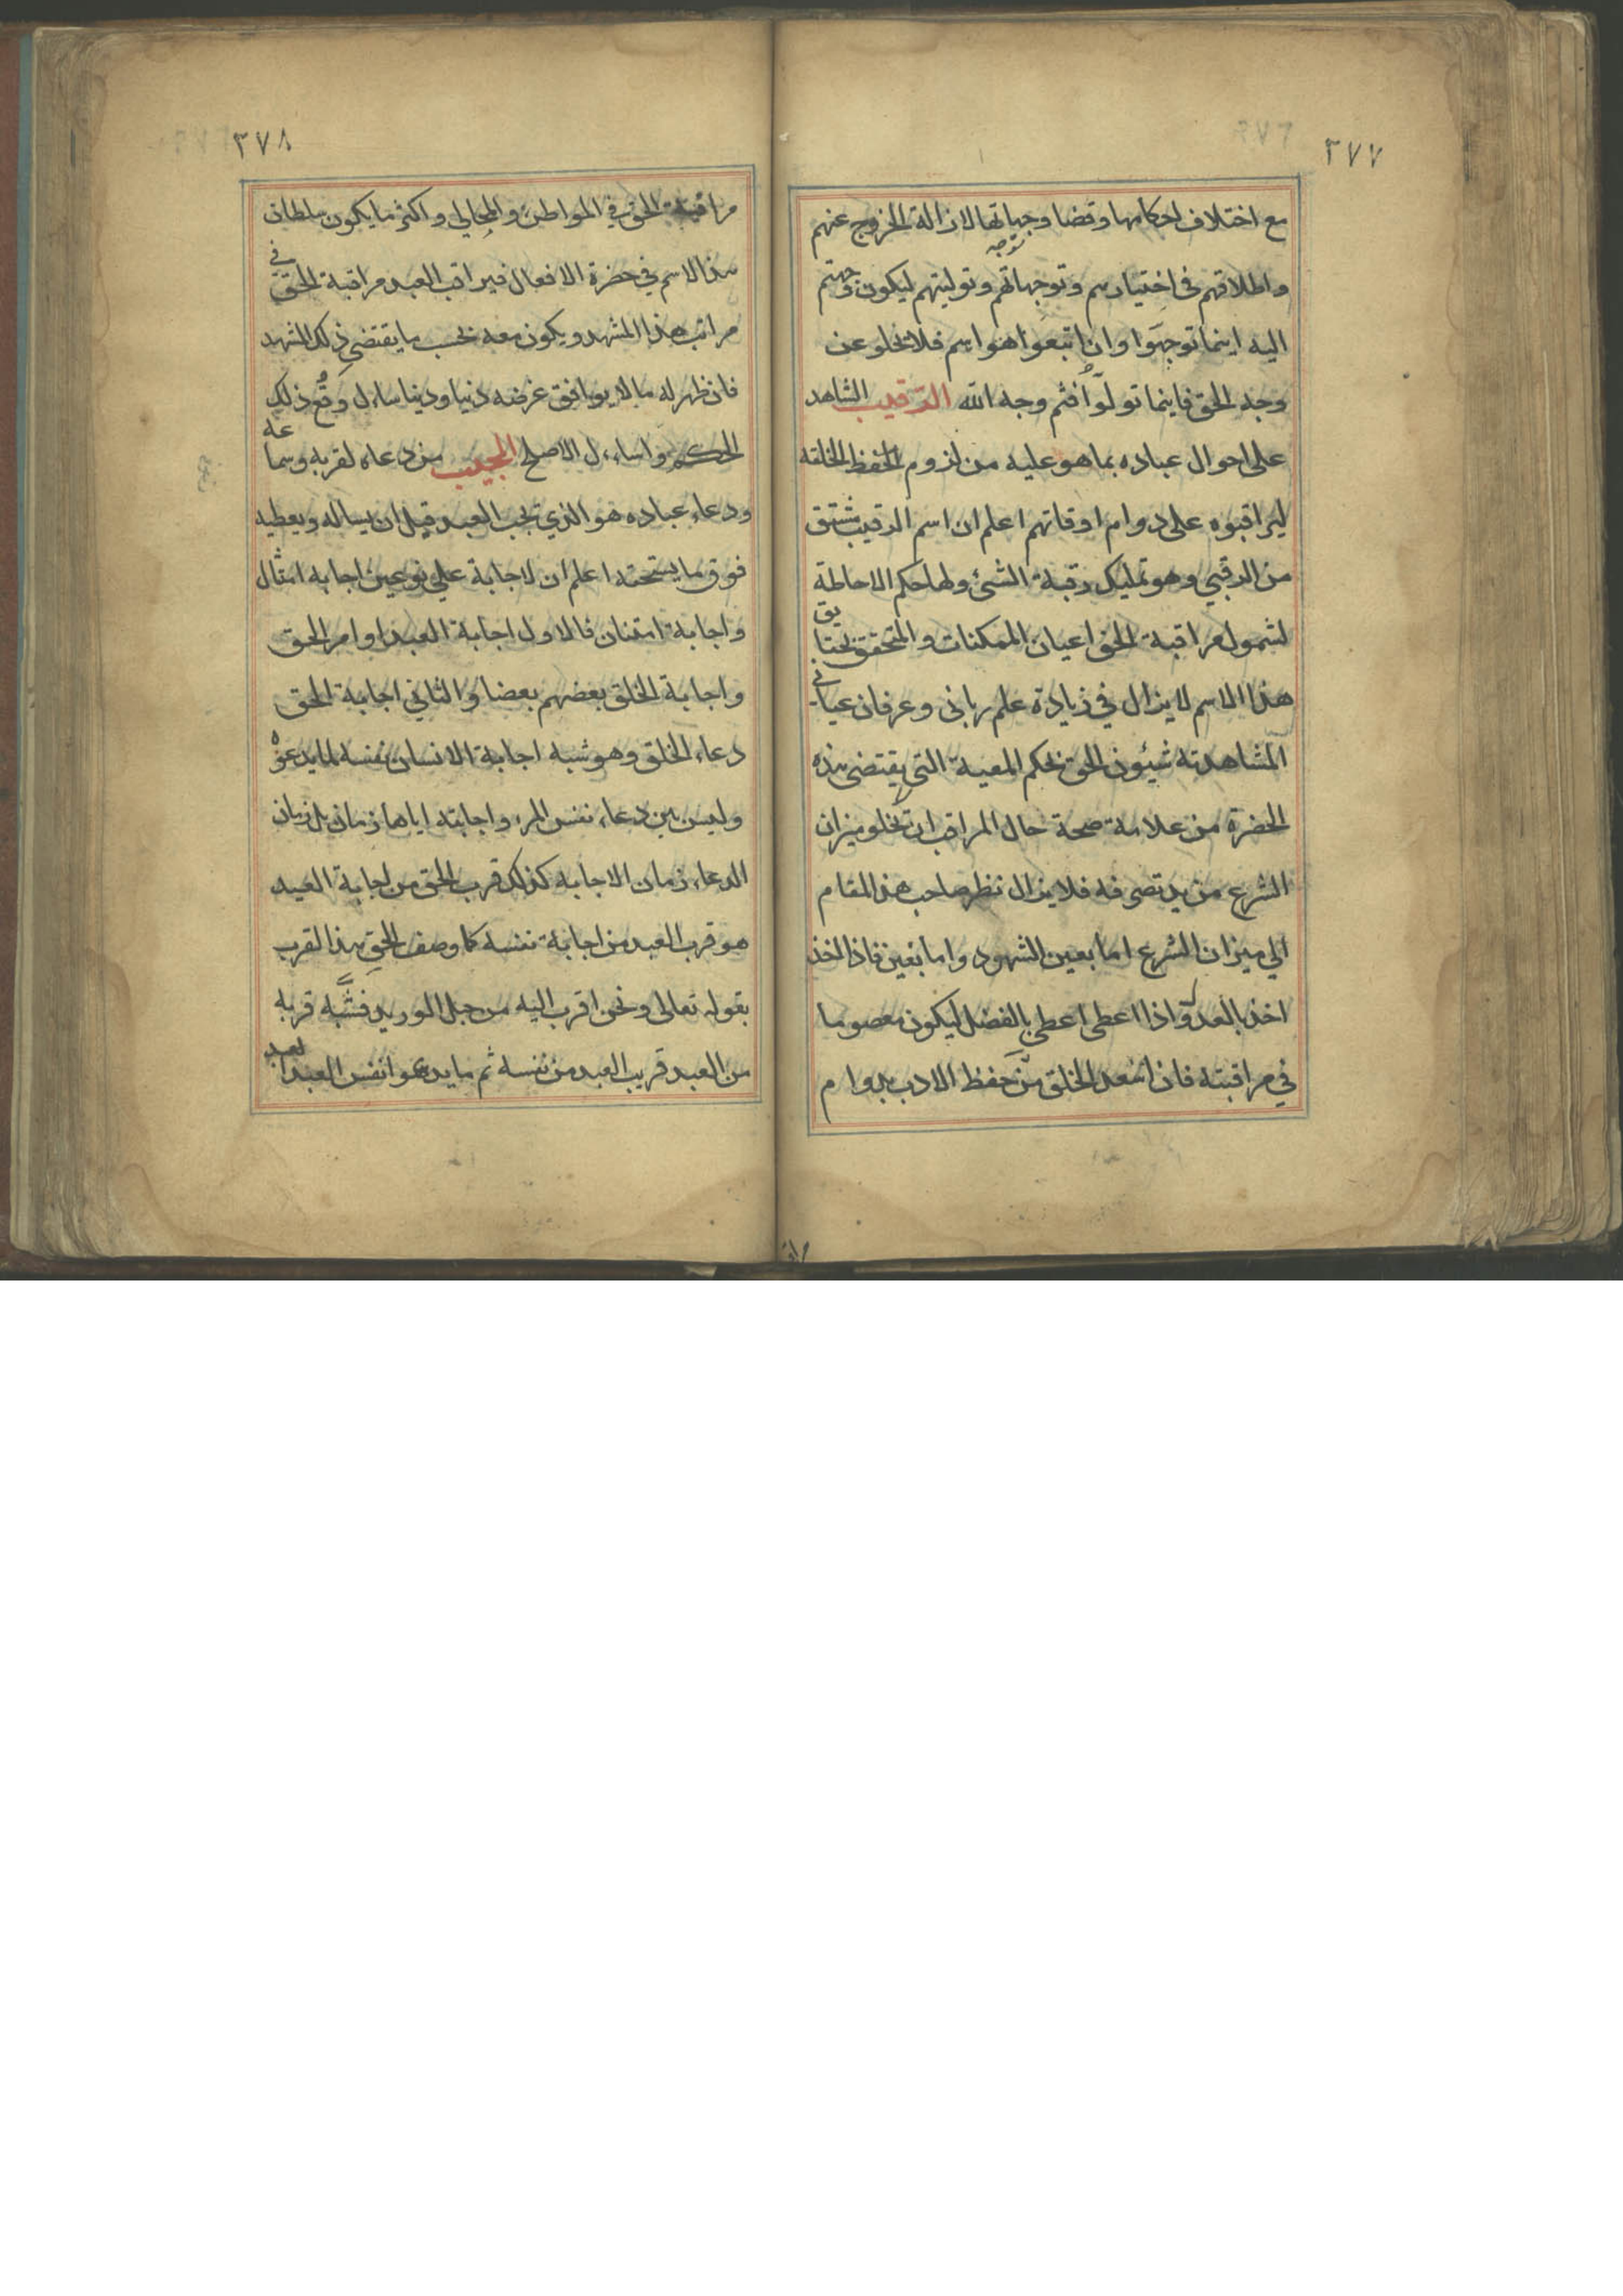 ٣٧٧
مع اختلاف احكامها وقضا وجهاتها لازالة الخروج عنهم
واطلاقهم فى اختيارهم وتوجهاتهم وتوليتهم ليكون وجهتم
توجه
اليه اينما توجهوا وان اتبعوا اهواهم فلا تخلو عن
وجه الحق فاينما تولوا فثم وجه الله الرقيب الشاهد
على احوال عباده بما هو عليه من لزوم الحفظ لخلقه
ليراقبوه على دوام اوقاتهم اعلم ان اسم الرقيب مشتق
من الرقبي وهو تمليك رقبة الشئ ولها حكم الاحاطة
لشمول مراقبة الحق اعيان الممكنات والمتحقق بحقايق
هذا الاسم لا يزال في زيادة علم رباني وعرفان عياني
لمشاهدته شيؤن الحق بحكم المعية التي يقتضى هذه
الحضرة من علامة صحة حال المراقب ان لا تخلو ميزان
الشرع من يد تصرفه فلا يزال نظر صاحب هذا المقام
الي ميزان الشرع اما بعين الشهود واما بغير فاذا اخذ
اخذ بالعدل واذا اعطى اعطى بالفضل ليكون معصوما
في مراقبته فان اسعد الخلق من حفظ الادب بدوام
٣٧٨
مراقبة الحق في المواطن والمجالي واكثر ما يكون سلطان
هذا الاسم في حضرة الافعال فيراقب العبد مراقبة الحق في
مراتب هذا المشهد ويكون معه بحسب ما يقتضي ذلك المشهد
فان ظهر له ما لا يوافق غرضه دنيا ودينا سال رفع ذلك
الحكم وسال الاصلح المجيب من دعاه لقربه وسماعه
ودعاء عباده هو الذي يجب العبد قبل ان يساله ويعطيه
فوق ما يستحقه اعلم ان لاجابة علي نوعين اجابه امتثال
واجابة امتنان فالاول اجابة العبد اوامر الحق
واجابة الخلق بعضهم بعضا والثاني اجابة الحق
دعاء الخلق وهو شبه اجابة الانسان نفسه لما يدعوه
وليس بين دعاء نفس المرء واجابته اياها زمان بل زمان
الدعاء زمان الاجابه كذلك قرب الحق من اجابة العبد
هو قرب العبد من اجابة نفسه كما وصف الحق هذا القرب
بقوله تعالى ونحن اقرب اليه من حبل الوريد فشبه قربه
من العبد قريب العبد من نفسه ثم ما يدعوا نفس العبد العبد